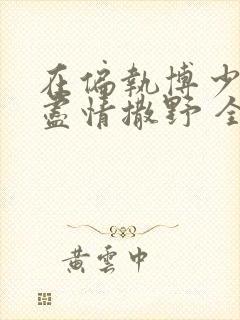 在偏執博少
盡情撒野 全
黃雲中